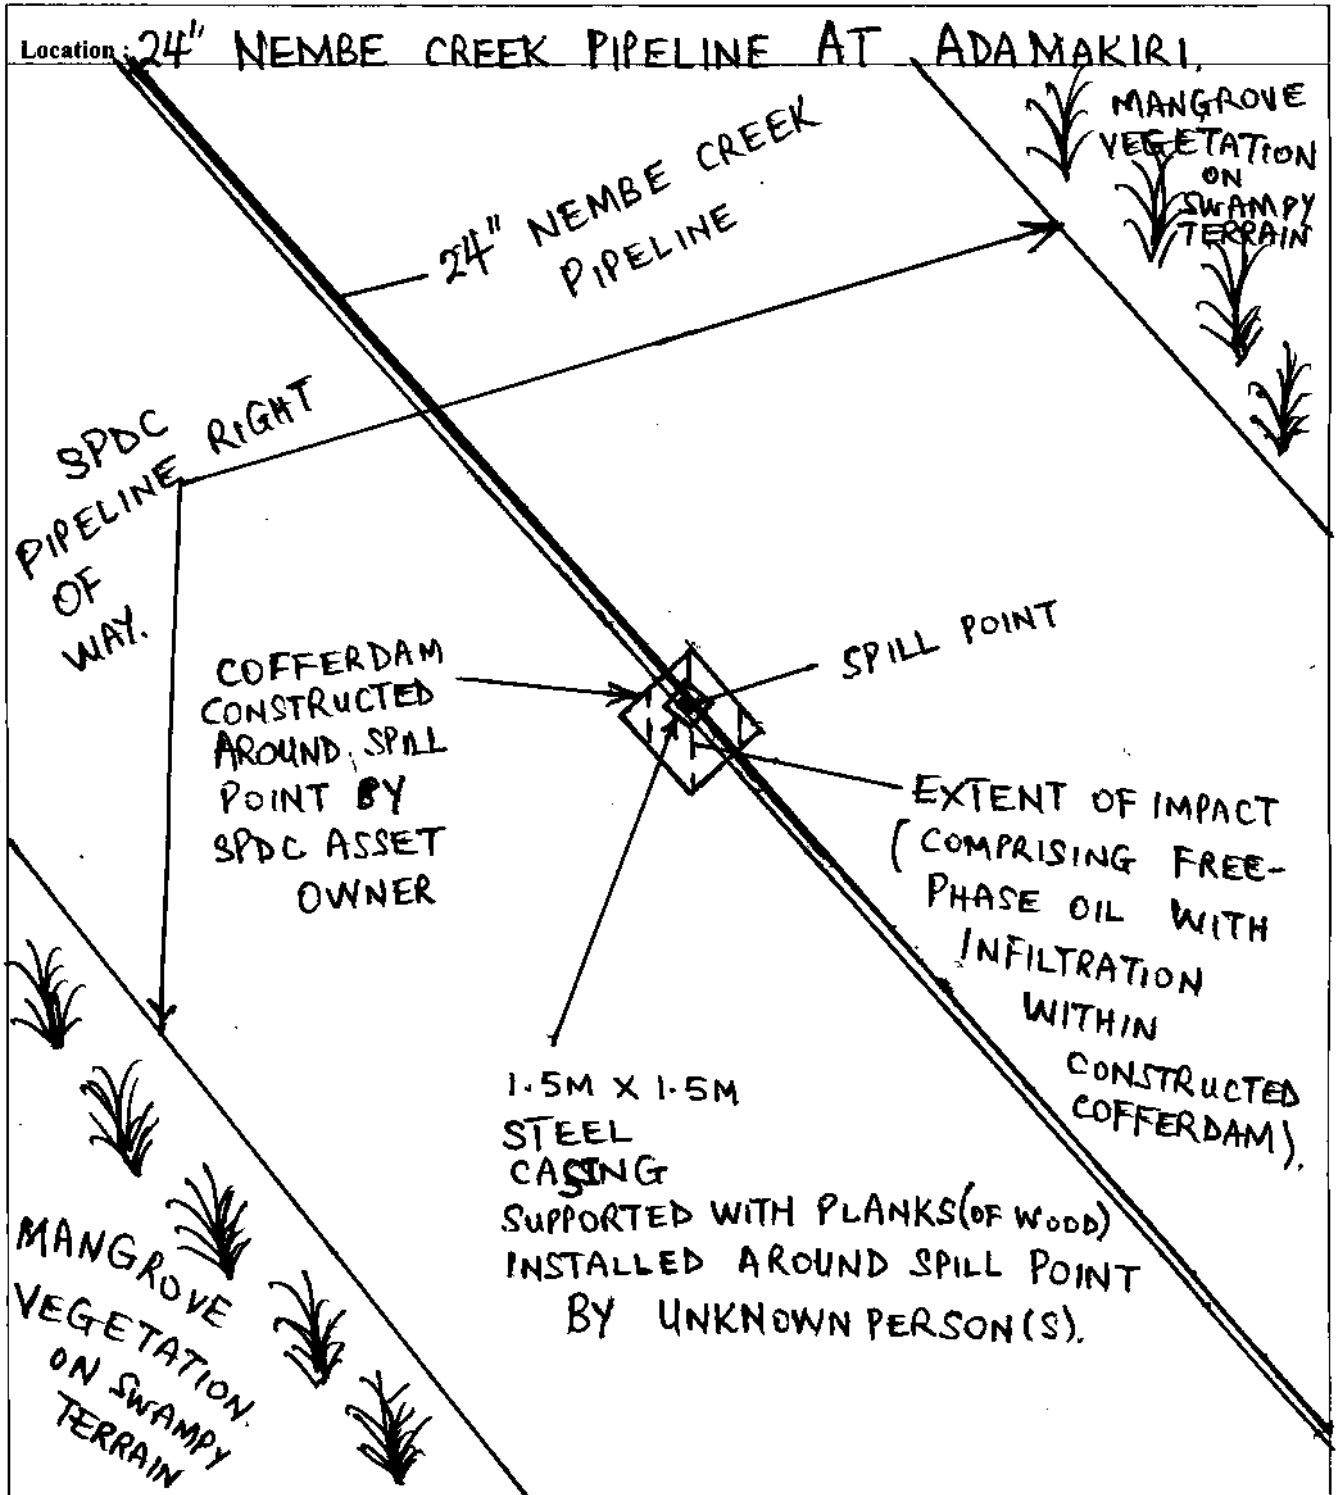 Location : 24" NEMBE CREEK PIPELINE AT ADAMAKIRI.
MANGROVE
VEGETATION
ON
SWAMPY
TERRAIN
24" NEMBE CREEK
PIPELINE
SPDC
PIPELINE RIGHT
OF
WAY.
COFFERDAM
CONSTRUCTED
AROUND SPILL
POINT BY
SPDC ASSET
OWNER
SPILL POINT
EXTENT OF IMPACT
(COMPRISING FREE-
PHASE OIL WITH
INFILTRATION
WITHIN
CONSTRUCTED
COFFERDAM).
1.5M X 1.5M
STEEL
CASING
SUPPORTED WITH PLANKS(OF WOOD)
INSTALLED AROUND SPILL POINT
BY UNKNOWN PERSON(S).
MANGROVE
VEGETATION.
ON SWAMPY
TERRAIN